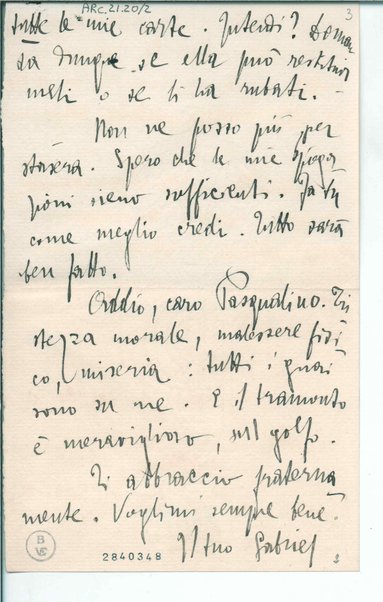 ARC.21.20/2
3
tutte le mie carte. Intendi? Doman
da dunque se ella può restituir
meli o se li ha rubati. -
Non ne posso più, per
stasera. Spero che le mie spiega
zioni sieno sufficenti. Fa tu
come meglio credi. Tutto sarà
ben fatto.
Addio, caro Pasqualino. Tri
stezza morale, malessere fisi
co, miseria: tutti i guai
sono su me. E il tramonto
è meraviglioso, sul golfo.
Ti abbraccio fraterna
mente. Voglimi sempre bene.
Il tuo Gabriel
B
VE
2840348